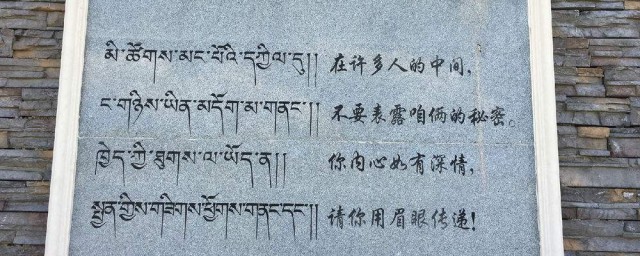 མི་ཚོགས་མང་པོའི་དཀྱིལ་དུ།། 在许多人的中间,
ང་གཉིས་ཡིན་མདོག་མ་གནང་།། 不要表露咱俩的秘密。
ཁྱེད་ཀྱི་ཐུགས་ལ་ཡོད་ན།། 你内心如有深情,
སྤྱན་གྱིས་གཟིགས་ཕྱོགས་གནང་དང་།། 请你用眉眼传递!